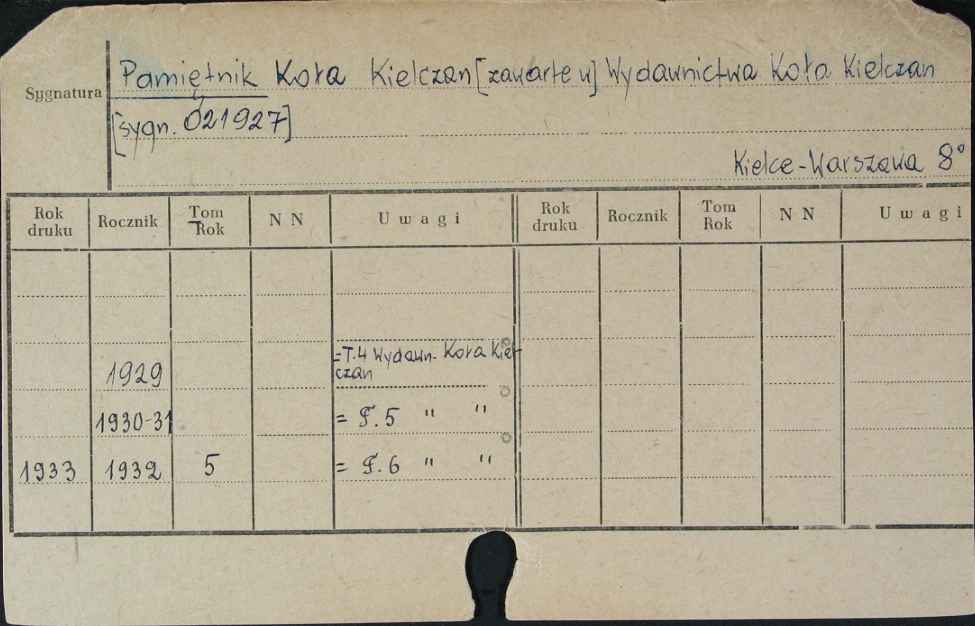 Sygnatura
Pamiętnik Koła Kielczan [zawarte w] Wydawnictwa Koła Kielczan
[sygn. 021927]
Kielce-Warszawa 8°
Rok druku Rocznik Tom Rok N N U w a g i Rok druku Rocznik Tom Rok N N U w a g i
1929 =T.4 Wydawn. Koła Kiel-
czan
1930-31 = T.5 " "
1933 1932 5 = T.6 " "